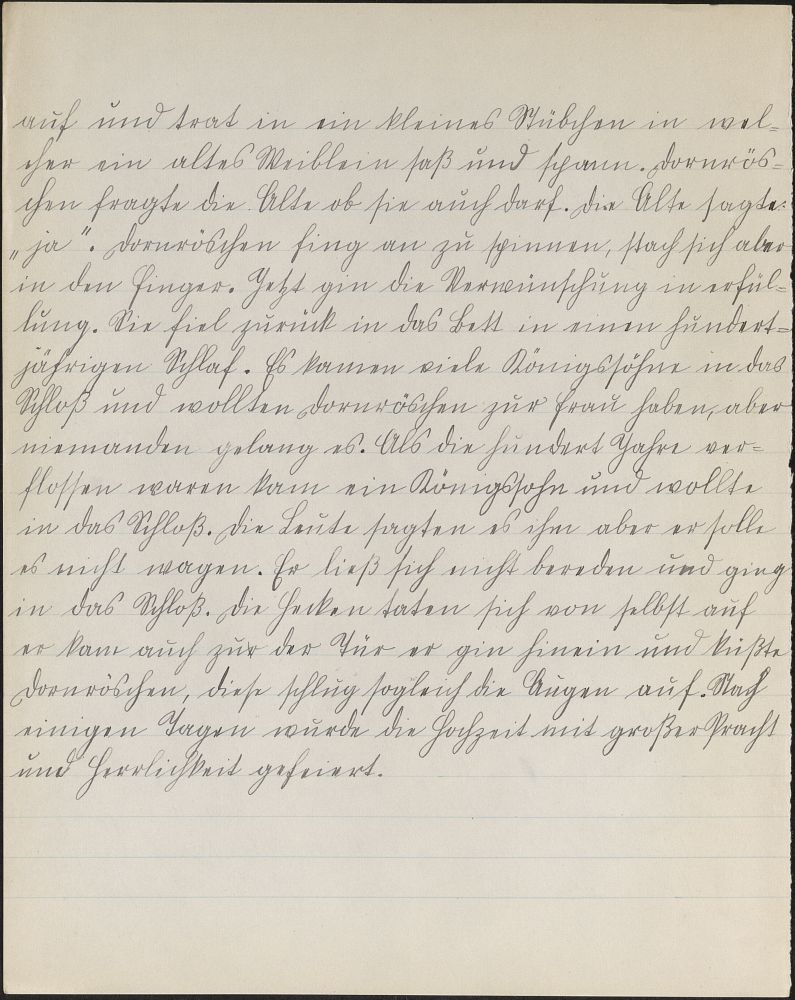 auf und trat in ein kleines Stübchen in wel=
cher ein altes Weiblein saß und spann. Dornrös=
chen fragte die Alte ob sie auch darf. Die Alte sagte:
„ja". Dornröschen fing an zu spinnen, stach sich aber
in den Finger. Jetzt gin die Verwünschung in erfül=
lung. Sie fiel zurück in das Bett in einen hundert=
jährigen Schlaf. Es kamen viele Königssöhne in das
Schloß und wollten Dornröschen zur Frau haben, aber
niemanden gelang es. Als die hundert Jahre ver=
flossen waren kam ein Königssohn und wollte
in das Schloß. Die Leute sagten es ihm aber er solle
es nicht wagen. Er ließ sich nicht bereden und ging
in das Schloß. Die Hecken taten sich von selbst auf
er kam auch zur der Tür er gin hinein und küßte
Dornröschen, diese schlug sogleich die Augen auf. Nach
einigen Tagen wurde die Hochzeit mit großer Pracht
und Herrlichkeit gefeiert.